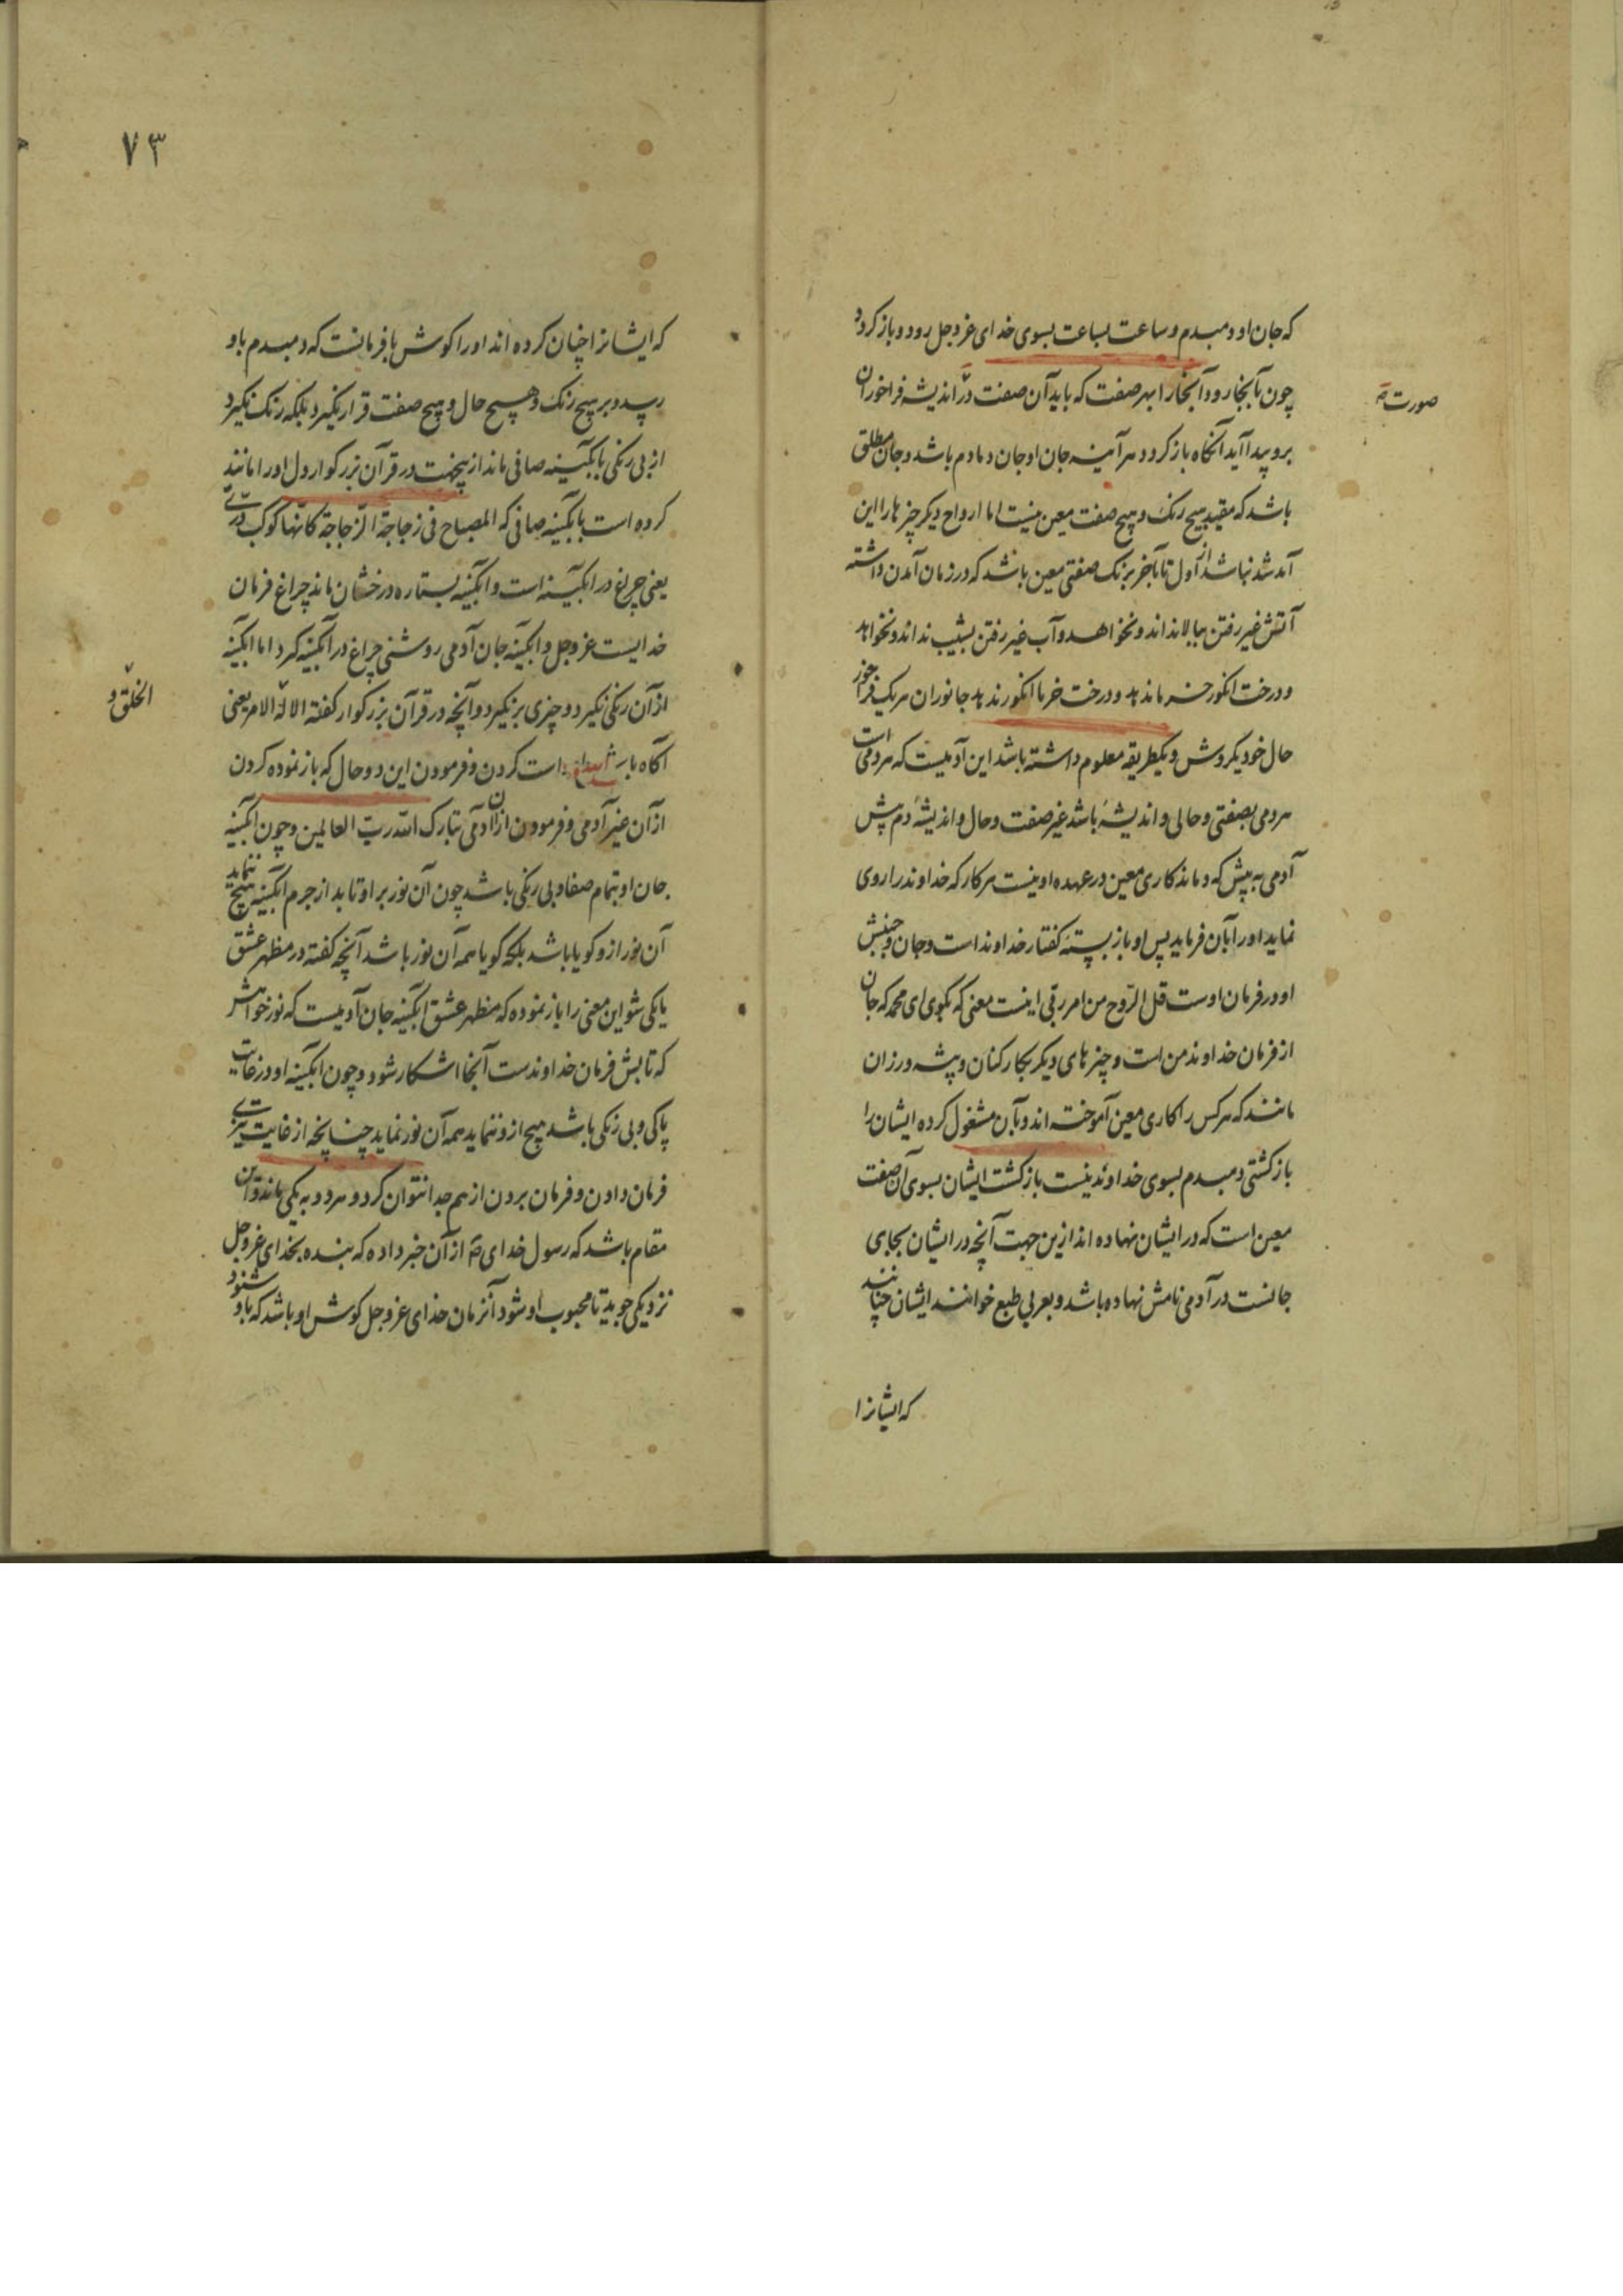 که جان او دمبدم و ساعت بساعت بسوی خدای عزوجل رود و باز کردد
چون بآنجا رود آنجا را بهر صفت که باید آن صفت در اندیشه فراخور آن
صورت
برو پیدا آید آنکاه باز کردد هر آینه جان او جان دمادم باشد و جان مطلق
باشد که مقید بهیچ رنک و هیچ صفت معین نیست اما ارواح دیکر چیزها را این
آمد شد نباشد از اول تا بآخر برنک صفتی معین باشد که در زمان آمدن داشته
آتش غیر رفتن ببالا نداند و نخواهد و آب غیر رفتن بشیب نداند و نخواهد
و درخت انکور خرما ندهد و درخت خرما انکور ندهد جانوران هر یک فراخور
حال خود یکروش و یکطریقه معلوم داشته باشد این آدمیست که هر دمی است
هر دمی بصفتی و حالی و اندیشهٔ باشد غیر صفت و حال و اندیشهٔ دم پیش
آدمی به پیش که دماند کاری معین در عهده او نیست هر کار که خداوند را روی
نماید او را بآن فرماید پس او باز بستهٔ کفتار خداوند است و جان و جنبش
او در فرمان اوست قل الروح من امر ربی اینست معنی که بکوی ای محمد که جان
از فرمان خداوند من است و چیزهای دیکر بکارکنان و پیشه ورزان
مانند که هر کس را کاری معین آموخته اند و بآن مشغول کرده ایشان را
بازکشتی دمبدم بسوی خداوند نیست بازکشت ایشان بسوی آن صفت
معین است که در ایشان نهاده اند ازین جهت آنچه در ایشان بجای
جانست در آدمی نامش نهاده باشد و بعربی طبع خوانند ایشان چنانند
که ایشانرا
۷۳
که ایشانرا چنان کرده اند او را کوش با فرمانست که دمبدم باو
رسد و بر هیچ رنک و هیچ حال و هیچ صفت قرار نکیرد بلکه رنک نکیرد
از بی رنکی بآبکینه صافی ماند ازیجهت در قرآن بزرکوار دل او را مانند
کرده است بآبکینه صافی که المصباح فی زجاجة الزجاجة کانها کوکب دری
یعنی چراغ در آبکینه است و آبکینه بستاره درخشان ماند چراغ فرمان
خدایست عزوجل و آبکینه جان آدمی روشنی چراغ در آبکینه کیرد اما آبکینه
از آن رنکی نکیرد و چیزی برنکیرد و آنچه در قرآن بزرکوار کفته الا له الامر یعنی
الخلق و
آکاه باش است کردن و فرمودن این دو حال که باز نموده کردن
از آن غیر آدمی و فرمودن از آن آدمی تبارک الله رب العالمین و چون آبکینه
جان او بتمام صفا و بی رنکی باشد چون آن نور بر او تابد از جرم آبکینه هیچ ننماید
آن نور ازو کویا باشد بلکه کویا همه آن نور باشد آنچه کفته در مظهر عشق
یا یکی شو این معنی را باز نموده که مظهر عشق آبکینه جان آدمیست که نور خواهش
که تابش فرمان خداوندست آنجا اشکار شود و چون آبکینه او در غایت
پاکی و بی رنکی باشد هیچ ازو ننماید همه آن نور نماید چنانچه از غایت تیزی
فرمان دادن و فرمان بردن از هم جدا نتوان کرد و هر دو به یکی ماند و آن
مقام باشد که رسول خدای ص از آن خبر داده که بنده بخدای عزوجل
نزدیکی جوید تا محبوب او شود آنزمان خدای عزوجل کوش او باشد که باو شنود